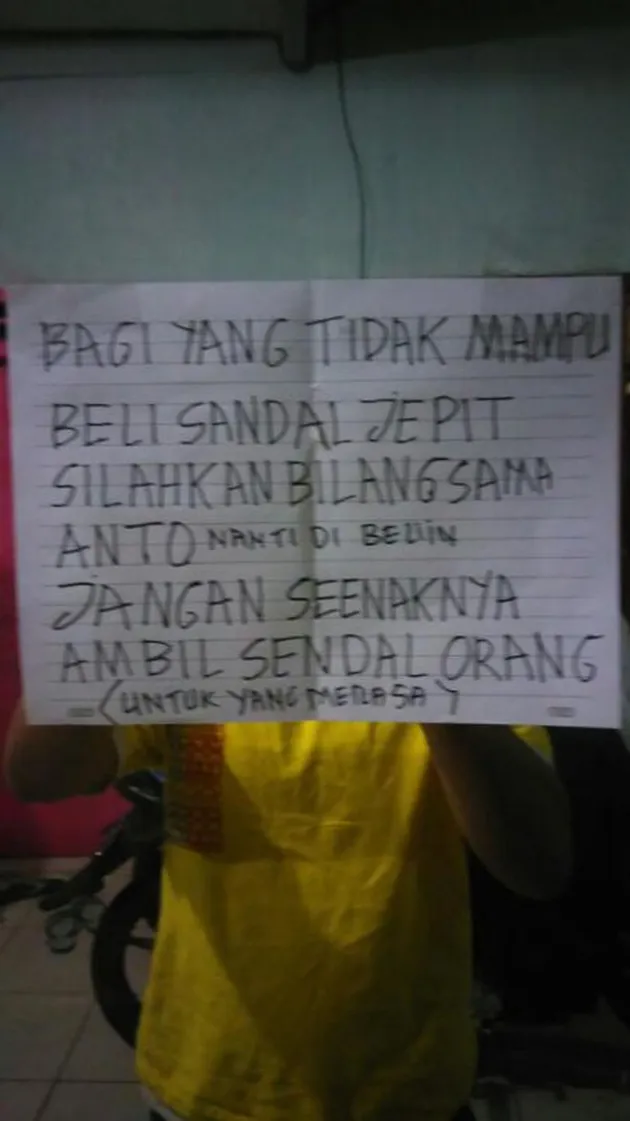 BAGI YANG TIDAK MAMPU
BELI SANDAL JEPIT
SILAHKAN BILANG SAMA
ANTO NANTI DI BELIIN
JANGAN SEENAKNYA
AMBIL SENDAL ORANG
(UNTUK YANG MERASA)